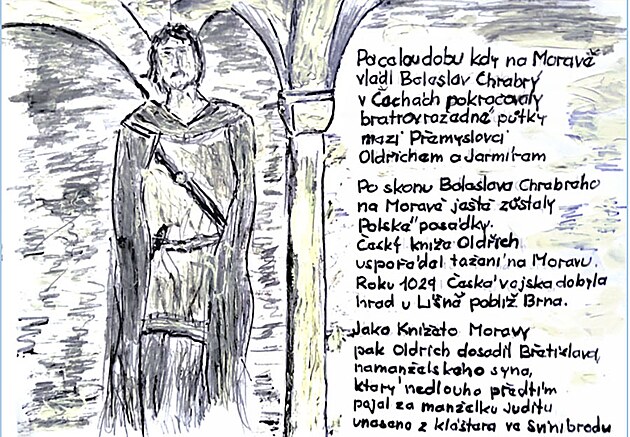 Po celou dobu kdy na Moravě
vládl Boleslav Chrabrý
v Čechách pokračovaly
bratrovražedné půtky
mezi Přemyslovci
Oldřichem a Jarmírem
Po skonu Boleslava Chrabrého
na Moravě ještě zůstaly
Polské posádky.
Český kníže Oldřich
uspořádal tažení na Moravu.
Roku 1029 Česká vojska dobyla
hrad u Líšně poblíž Brna.
Jako Knížeto Moravy
pak Oldřich dosadil Břetislava,
nemanželského syna,
který nedlouho předtím
pojal za manželku Juditu
unesenou z kláštera ve Svinibrodu